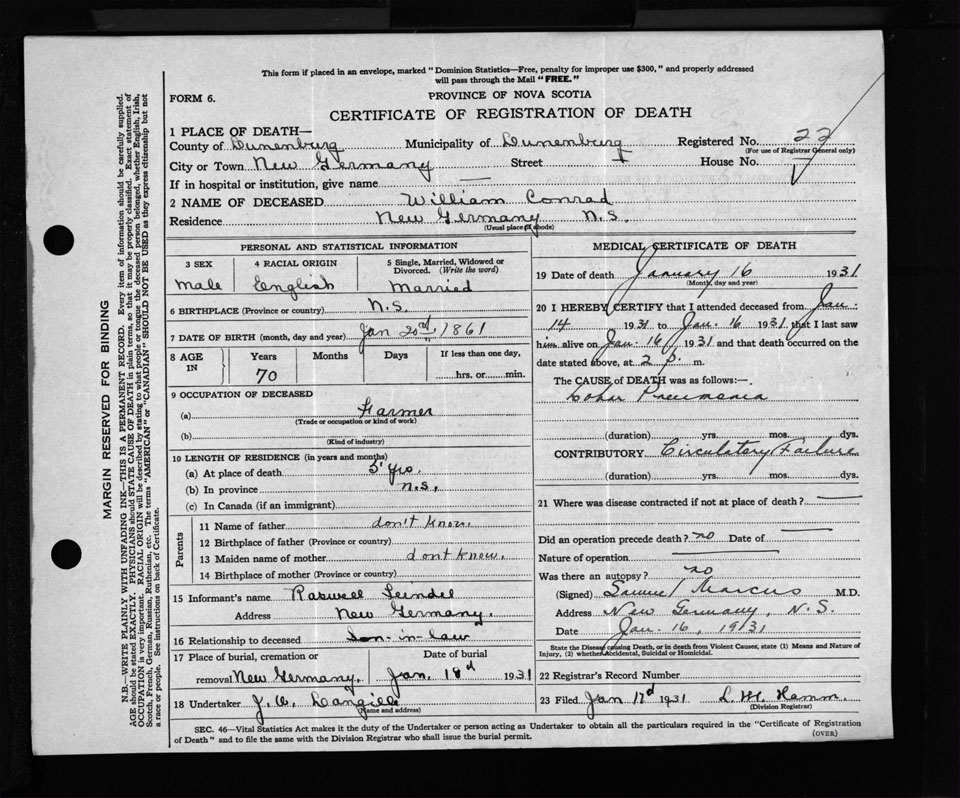 This form if placed in an envelope, marked "Dominion Statistics—Free, penalty for improper use $300," and properly addressed
will pass through the Mail "FREE."
FORM 6.
PROVINCE OF NOVA SCOTIA
CERTIFICATE OF REGISTRATION OF DEATH
1 PLACE OF DEATH—
County of Lunenburg Municipality of Lunenburg Registered No. 22
(For use of Registrar General only)
City or Town New Germany Street House No.
If in hospital or institution, give name —
2 NAME OF DECEASED William Conrad
Residence New Germany N.S.
(Usual place of abode)
PERSONAL AND STATISTICAL INFORMATION
3 SEX 4 RACIAL ORIGIN 5 Single, Married, Widowed or Divorced. (Write the word)
Male English Married
6 BIRTHPLACE (Province or country) N.S.
7 DATE OF BIRTH (month, day and year) Jan 20rd 1861
8 AGE IN Years Months Days If less than one day,
70 hrs. or min.
9 OCCUPATION OF DECEASED
(a) Farmer
(Trade or occupation or kind of work)
(b)
(Kind of industry)
10 LENGTH OF RESIDENCE (in years and months)
(a) At place of death 5 yrs.
(b) In province N.S.
(c) In Canada (if an immigrant)
Parents
11 Name of father don't know.
12 Birthplace of father (Province or country)
13 Maiden name of mother dont know.
14 Birthplace of mother (Province or country)
15 Informant's name
Address New Germany.
16 Relationship to deceased Son-in-law
17 Place of burial, cremation or removal New Germany. Date of burial Jan. 18d 1931
18 Undertaker J. Langille
(Name and address)
MEDICAL CERTIFICATE OF DEATH
19 Date of death January 16 1931
(Month, day and year)
20 I HEREBY CERTIFY that I attended deceased from Jan.
14 1931 to Jan. 16 1931 that I last saw
him alive on Jan. 16 1931 and that death occurred on the
date stated above, at 2 p. m.
The CAUSE of DEATH was as follows:—
Lobar Pneumonia
(duration) yrs. mos. dys.
CONTRIBUTORY Circulatory Failure
(duration) yrs. mos. dys.
21 Where was disease contracted if not at place of death? —
Did an operation precede death? no Date of —
Nature of operation —
Was there an autopsy? no
(Signed) Samuel Marcus M.D.
Address New Germany, N.S.
Date Jan. 16, 1931
State the Disease causing Death, or in death from Violent Causes, state (1) Means and Nature of
Injury, (2) whether Accidental, Suicidal or Homicidal.
22 Registrar's Record Number
23 Filed Jan 17d 1931 L. M. Hamm.
(Division Registrar)
SEC. 46—Vital Statistics Act makes it the duty of the Undertaker or person acting as Undertaker to obtain all the particulars required in the "Certificate of Registration
of Death" and to file the same with the Division Registrar who shall issue the burial permit.
(OVER)
MARGIN RESERVED FOR BINDING
N.B.—WRITE PLAINLY WITH UNFADING INK—THIS IS A PERMANENT RECORD. Every item of information should be carefully supplied.
AGE should be stated EXACTLY. PHYSICIANS should STATE CAUSE OF DEATH in plain terms, so that it may be properly classified. Exact statement of
OCCUPATION is very important. RACIAL ORIGIN will be described by stating to what people or tongue the deceased person belonged, whether English, Irish,
Scotch, French, German, Russian, Ruthenian, etc. The terms "AMERICAN" or "CANADIAN" SHOULD NOT BE USED as they express citizenship but not
a race or people. See instructions on back of Certificate.